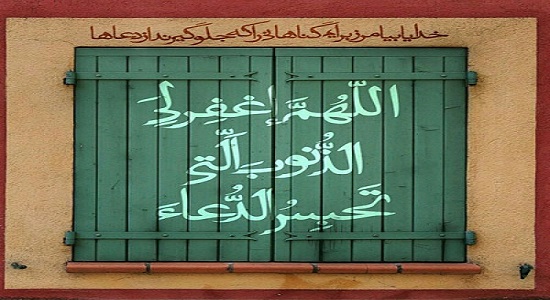 خدایا بیامرز برایم گناهانی را که جلوگیرند از دعاها
اللّهُمَّ إغفِرلِیَ
الذُّنوبَ الَّتی
تَحبِسُ الدُّعاءَ